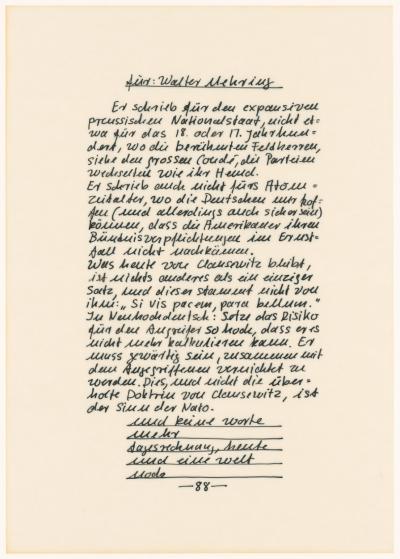 für: Walter Mehring
Er schrieb für den expansiven
preussischen Nationalstaat, nicht et=
wa für das 18. oder 17. Jahrhun=
dert, wo die berühmten Feldherren,
siehe den grossen Condé, die Parteien
wechselten wie ihr Hemd.
Er schrieb auch nicht fürs Atom=
zeitalter, wo die Deutschen nur hof=
fen (und allerdings auch sicher sein)
können, dass die Amerikaner ihren
Bündnisverpflichtungen im Ernst=
fall nicht nachkämen.
Was heute von Clausewitz bleibt,
ist nichts anderes als ein einziger
Satz, und dieser stammt nicht von
ihm: „Si vis pacem, para bellum."
In Neuhochdeutsch: Setze das Risiko
für den Angreifer so hoch, dass er es
nicht mehr kalkulieren kann. Er
muss gewärtig sein, zusammen mit
dem Angegriffenen vernichtet zu
werden. Dies, und nicht die über=
holte Doktrin von Clausewitz, ist
der Sinn der Nato.
und keine worte
mehr
tagesrechnung, heute
und eine welt
noch
—88—